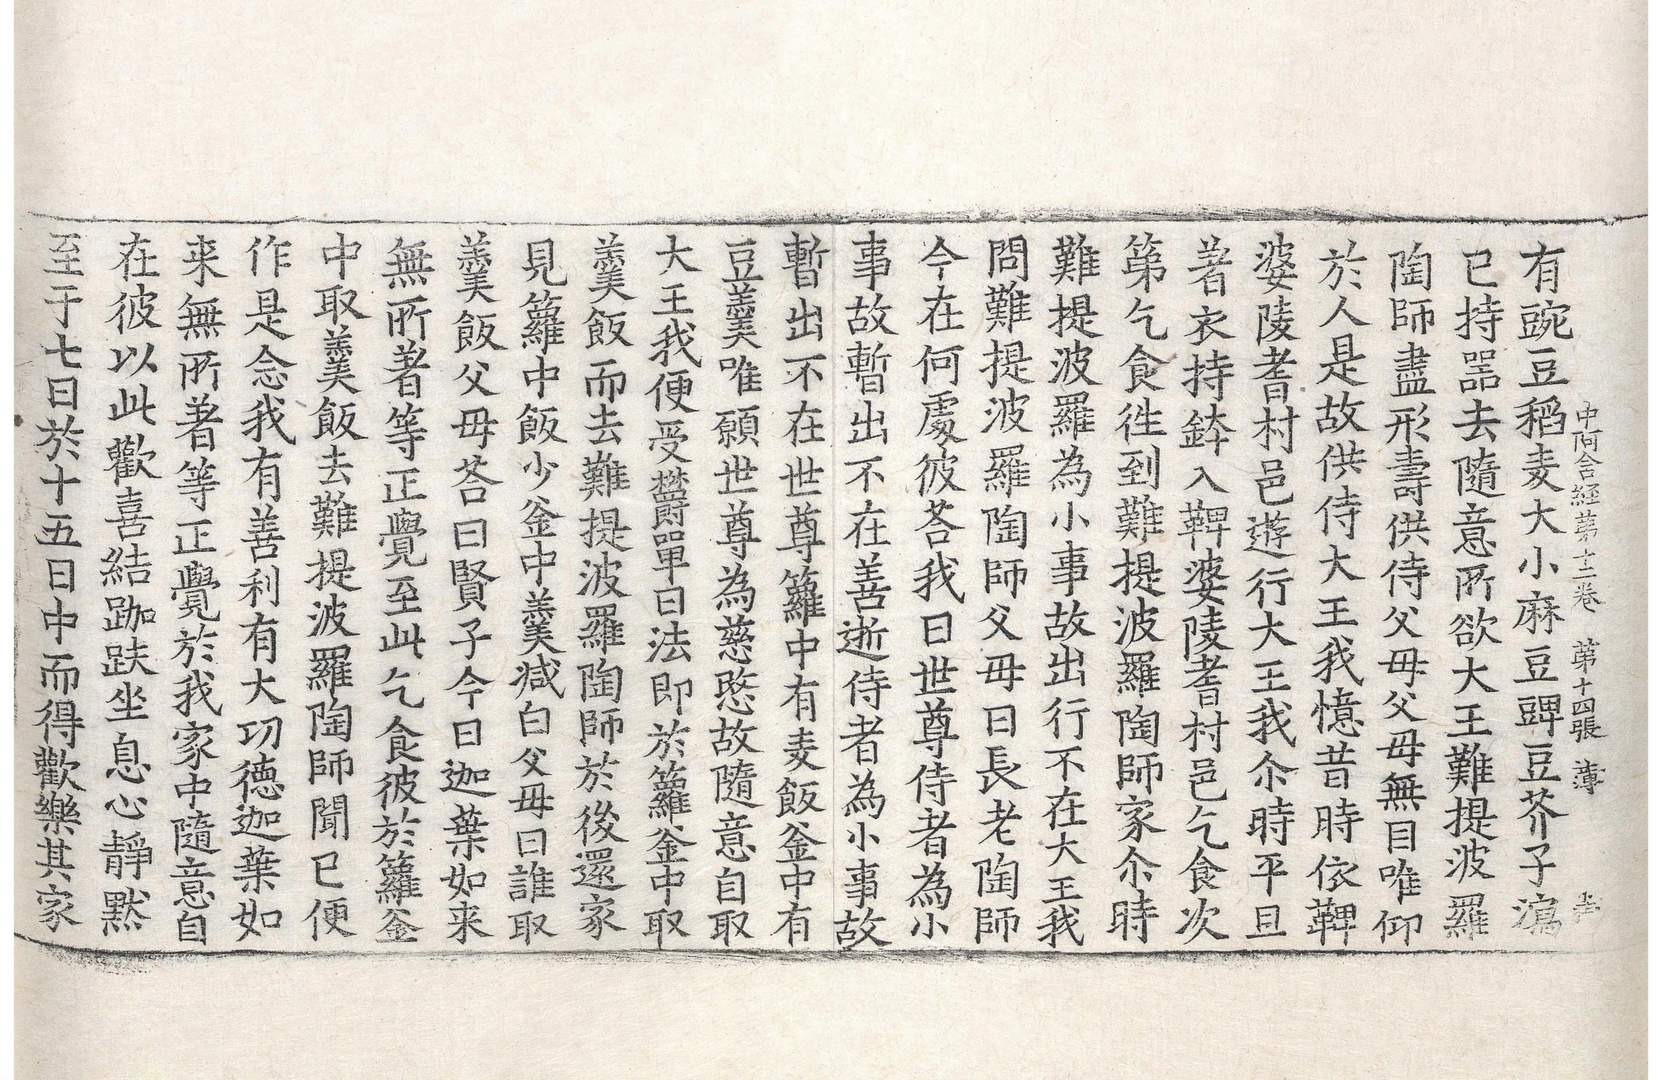 中阿含経苐十二巻　苐十四張　薄
有豌豆稻麦大小麻豆豍豆芥子瀉
已持器去隨意所欲大王難提波羅
陶師盡形壽供侍父母父母無目唯仰
於人是故供侍大王我憶昔時依鞞
婆陵耆村邑遊行大王我尒時平旦
著衣持鉢入鞞婆陵耆村邑乞食次
第乞食徃到難提波羅陶師家尒時
難提波羅為小事故出行不在大王我
問難提波羅陶師父母曰長老陶師
今在何處彼荅我曰世尊侍者為小
事故暫出不在善逝侍者為小事故
暫出不在世尊籮中有麦飯釜中有
豆羹唯願世尊為慈愍故隨意自取
大王我便受欝單曰法即於籮釜中取
羹飯而去難提波羅陶師於後還家
見籮中飯少釜中羹減白父母曰誰取
羹飯父母荅曰賢子今日迦葉如来
無所著等正覺至此乞食彼於籮釜
中取羹飯去難提波羅陶師聞已便
作是念我有善利有大功德迦葉如
来無所著等正覺於我家中隨意自
在彼以此歡喜結跏趺坐息心靜默
至于七日於十五日中而得歡樂其家